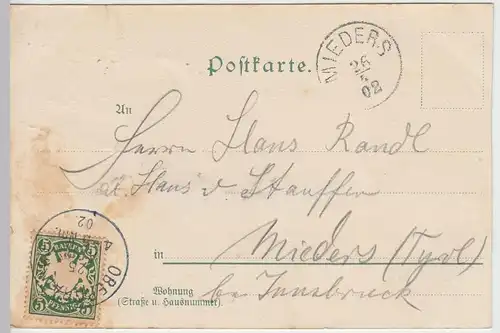 Postkarte.
MIEDERS
26
02
An
Herrn Hans Randl
z. Hans v Stauffen
Mieders (Tyrol)
in
Wohnung
(Straße u. Hausnummer)
bei Innsbruck
5 BAYERN 5
5 PFENNIG 5
02.
OBE